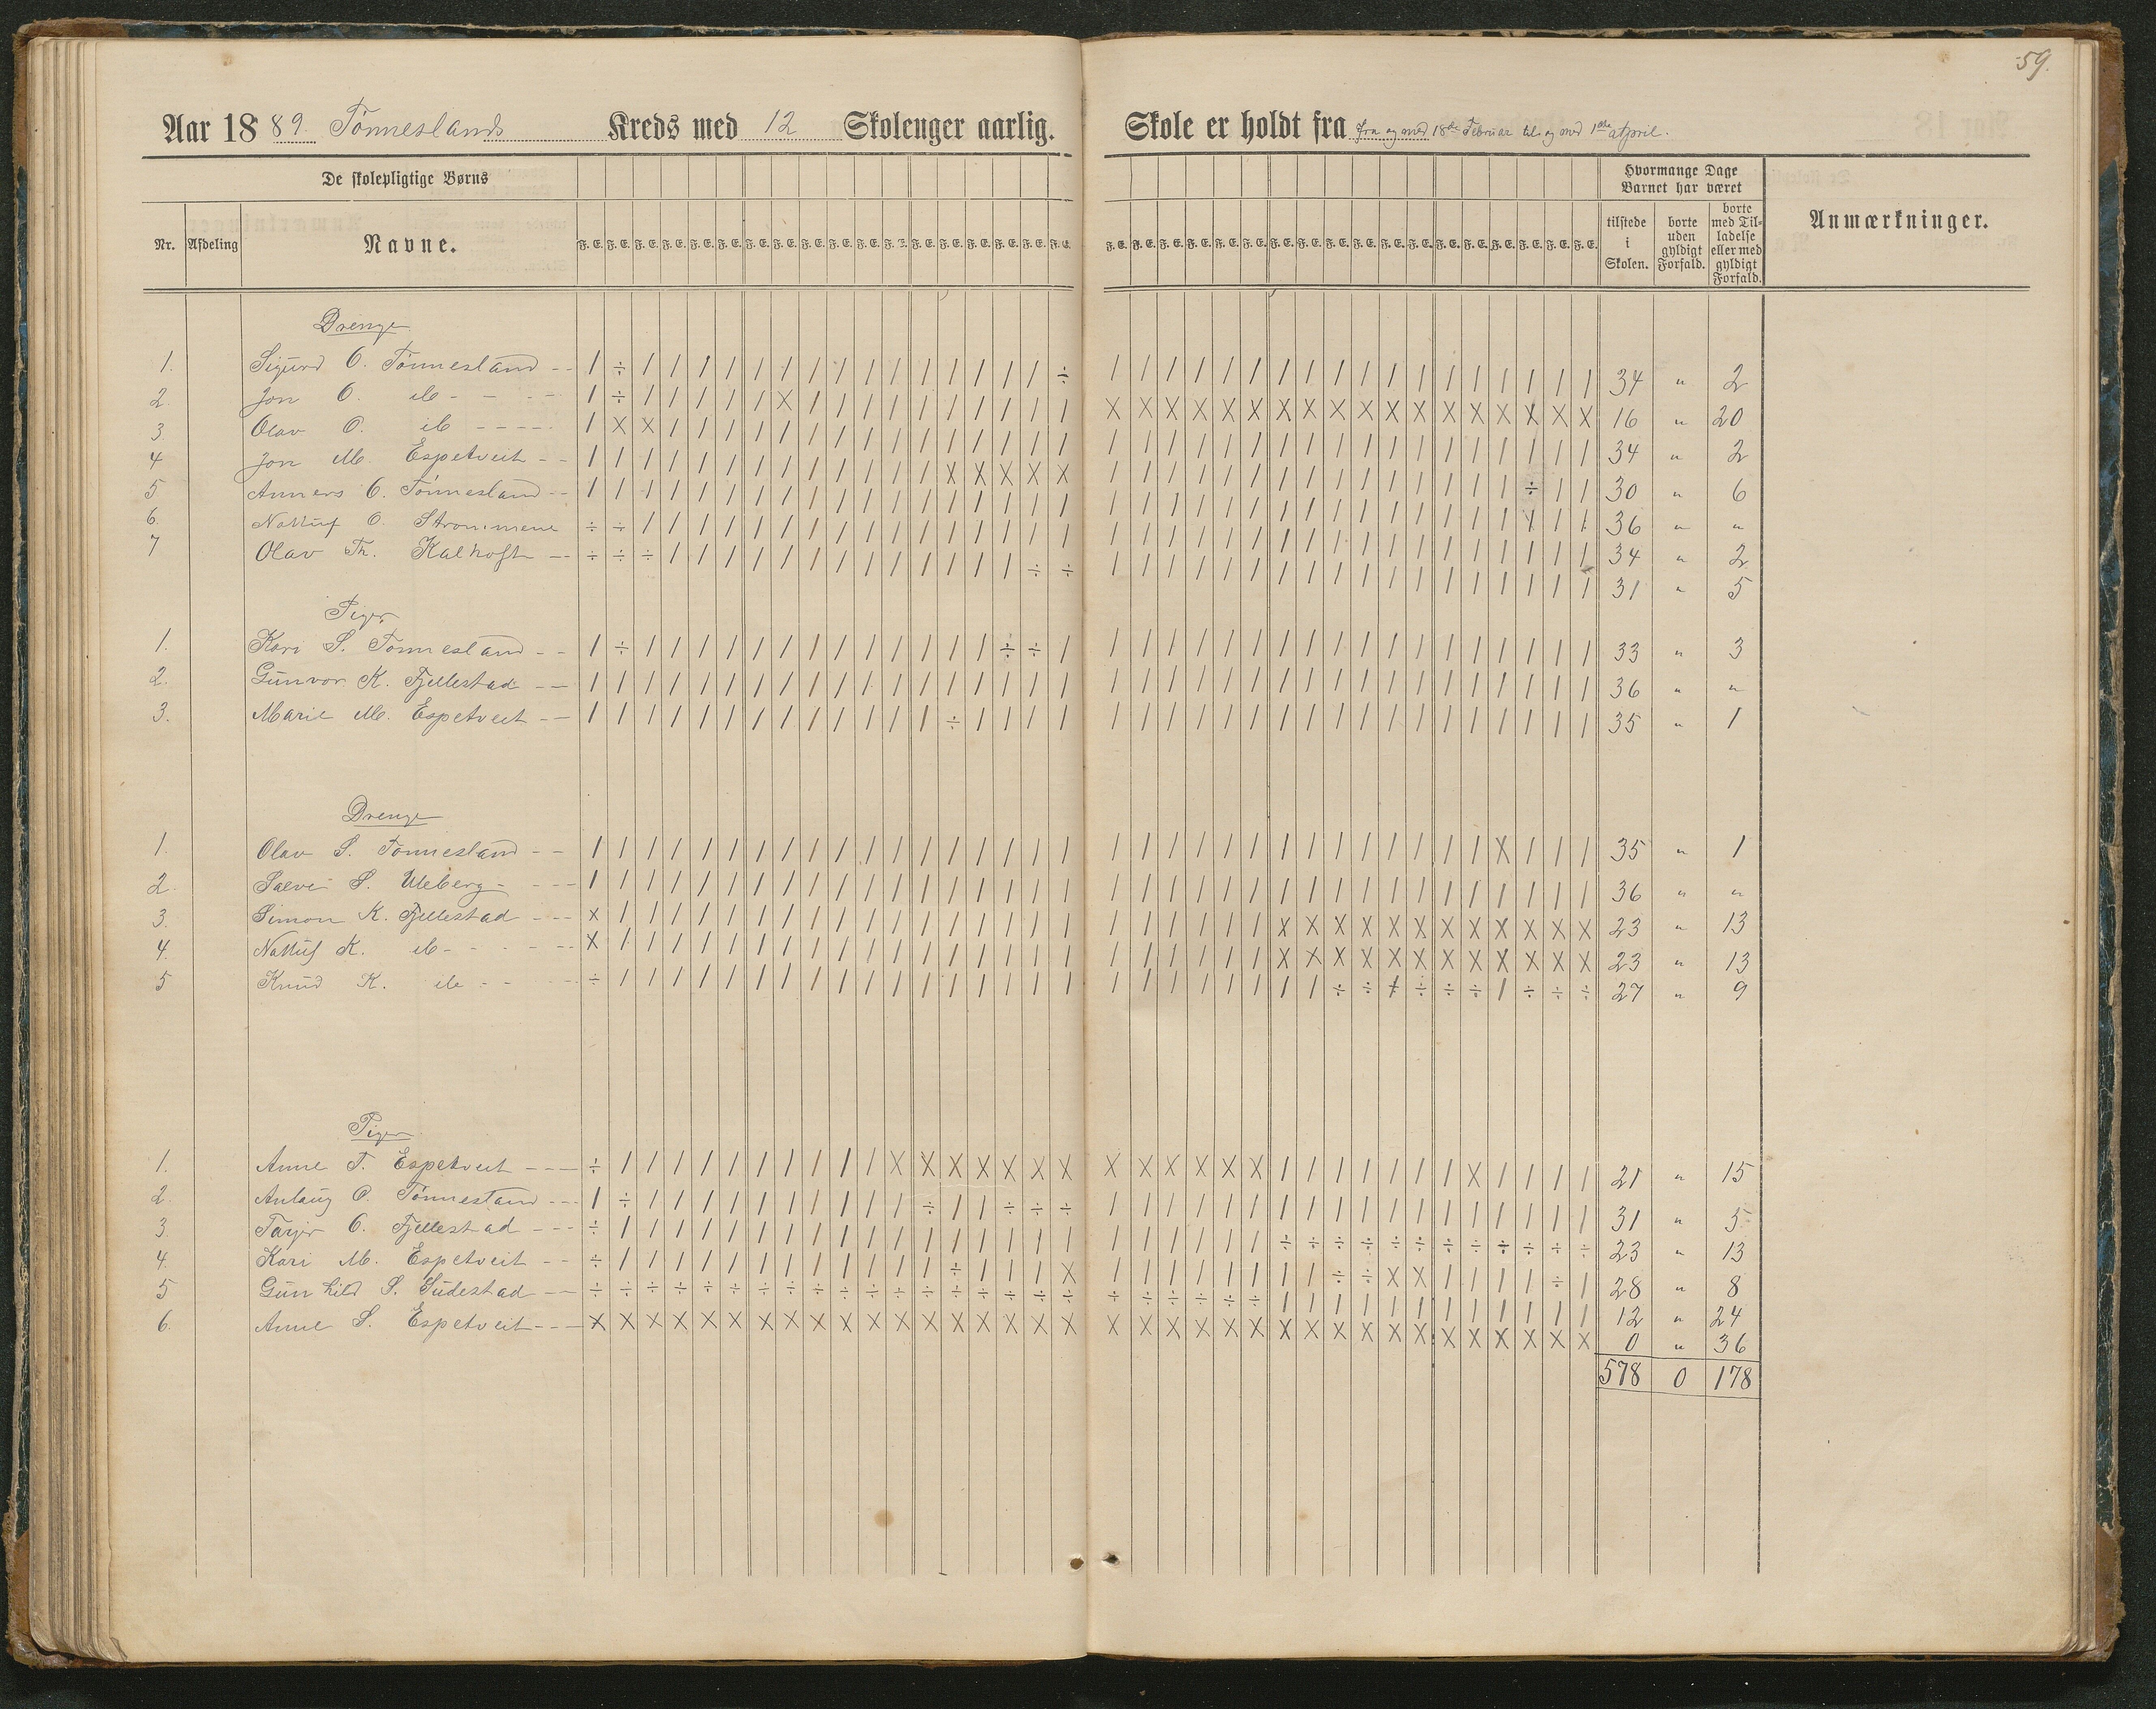 59.
Aar 1889. Tønneslands Kreds med 12 Skoleuger aarlig. Skole er holdt fra fra og med 18de Februar til og med 1ste April.
De skolepligtige Børns
Hvormange Dage Barnet har været
Nr. Afdeling Navne. F. E. F. E. F. E. F. E. F. E. F. E. F. E. F. E. F. E. F. E. F. E. F. E. F. E. F. E. F. E. F. E. F. E. F. E. F. E. F. E. F. E. F. E. F. E. F. E. F. E. F. E. F. E. F. E. F. E. F. E. F. E. F. E. F. E. F. E. F. E. F. E. tilstede i Skolen. borte uden gyldigt Forfald. borte med Tilladelse eller med gyldigt Forfald. Anmærkninger.
Drenge
1. Sigurd O. Tønnesland -- / ÷ / / / / / / / / / / / / / / / ÷ / / / / / / / / / / / / / / / / / / 34 " 2
2. Jon O. do - - -- / ÷ / / / / / X / / / / / / / / / / X X X X X X X X X X X X X X X X X X 16 " 20
3. Olav O. do ---- / X X / / / / / / / / / / / / / / / / / / / / / / / / / / / / / / / / / 34 " 2
4 Jon M. Espetveit -- / / / / / / / / / / / / / X X X X X / / / / / / / / / / / / / / / ÷ / / 30 " 6
5 Anners O. Tønnesland -- / / / / / / / / / / / / / / / / / / / / / / / / / / / / / / / / / / / / 36 " "
6. Nottuf O. Strømmene ÷ ÷ / / / / / / / / / / / / / / / / / / / / / / / / / / / / / / / / / / 34 " 2
7 Olav Th. Kalhoft -- ÷ ÷ ÷ / / / / / / / / / / / / / ÷ ÷ / / / / / / / / / / / / / / / / / / 31 " 5
Piger
1. Kari S. Tønnesland -- / ÷ / / / / / / / / / / / / / ÷ ÷ / / / / / / / / / / / / / / / / / / / 33 " 3
2. Gunvor K. Fjellestad -- / / / / / / / / / / / / / / / / / / / / / / / / / / / / / / / / / / / / 36 " "
3. Marie M. Espetveit -- / / / / / / / / / / / / / ÷ / / / / / / / / / / / / / / / / / / / / / / 35 " 1
Drenge
1. Olav S. Tønnesland -- / / / / / / / / / / / / / / / / / / / / / / / / / / / / / / / / X / / / 35 " 1
2. Salve S. Uleberg - --- / / / / / / / / / / / / / / / / / / / / / / / / / / / / / / / / / / / / 36 " "
3. Simon K. Fjellestad --- X / / / / / / / / / / / / / / / / / / / / / / / X X X X X X X X X X X X 23 " 13
4. Nottuf K. do - - - -- X / / / / / / / / / / / / / / / / / / / / / / / X X X X X X X X X X X X 23 " 13
5 Knud K. do - - - ÷ / / / / / / / / / / / / / / / / / / / / / / / / / ÷ ÷ ÷ ÷ ÷ ÷ / ÷ ÷ ÷ 27 " 9
Piger
1. Anne T. Espetveit --- ÷ / / / / / / / / / / X X X X X X X X X X X X X / / / / / / / X / / / / 21 " 15
2. Anlaug O. Tønnesland --- / ÷ / / / / / / / / / / ÷ / / ÷ ÷ ÷ / / / / / / / / / / / / / / / / / / 31 " 5
3. Tarjer O. Fjellestad --- ÷ / / / / / / / / / / / / / / / / / / / / / / / ÷ ÷ ÷ ÷ ÷ ÷ ÷ ÷ ÷ ÷ ÷ ÷ 23 " 13
4. Kari M. Espetveit -- ÷ / / / / / / / / / / / / ÷ / / / X / / / / / / / / ÷ ÷ X X / / / / ÷ / 28 " 8
5 Gunhild S. Sudestad -- ÷ ÷ ÷ ÷ ÷ ÷ ÷ ÷ ÷ ÷ ÷ ÷ ÷ ÷ ÷ ÷ ÷ ÷ ÷ ÷ ÷ ÷ ÷ ÷ / / / / / / / / / / / / 12 " 24
6. Anne S. Espetveit --- X X X X X X X X X X X X X X X X X X X X X X X X X X X X X X X X X X X X 0 " 36
578 0 178